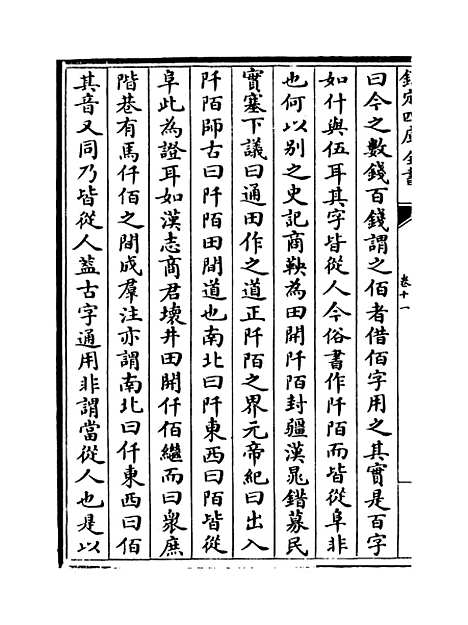 欽定四庫全書
卷十一
曰今之數錢百錢謂之佰者借佰字用之其實是百字
如什與伍耳其字皆從人今俗書作阡陌而皆從阜非
也何以別之史記商鞅為田開阡陌封疆漢晁錯募民
實塞下議曰通田作之道正阡陌之界元帝紀曰出入
阡陌師古曰阡陌田間道也南北曰阡東西曰陌皆從
阜此為證耳如漢志商君壞井田開仟佰繼而曰衆庶
階巷有馬仟佰之間成羣注亦謂南北曰仟東西曰佰
其音又同乃皆從人蓋古字通用非謂當從人也是以